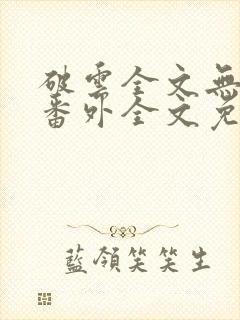 破雲全文無
番外全文免
藍領笑笑生